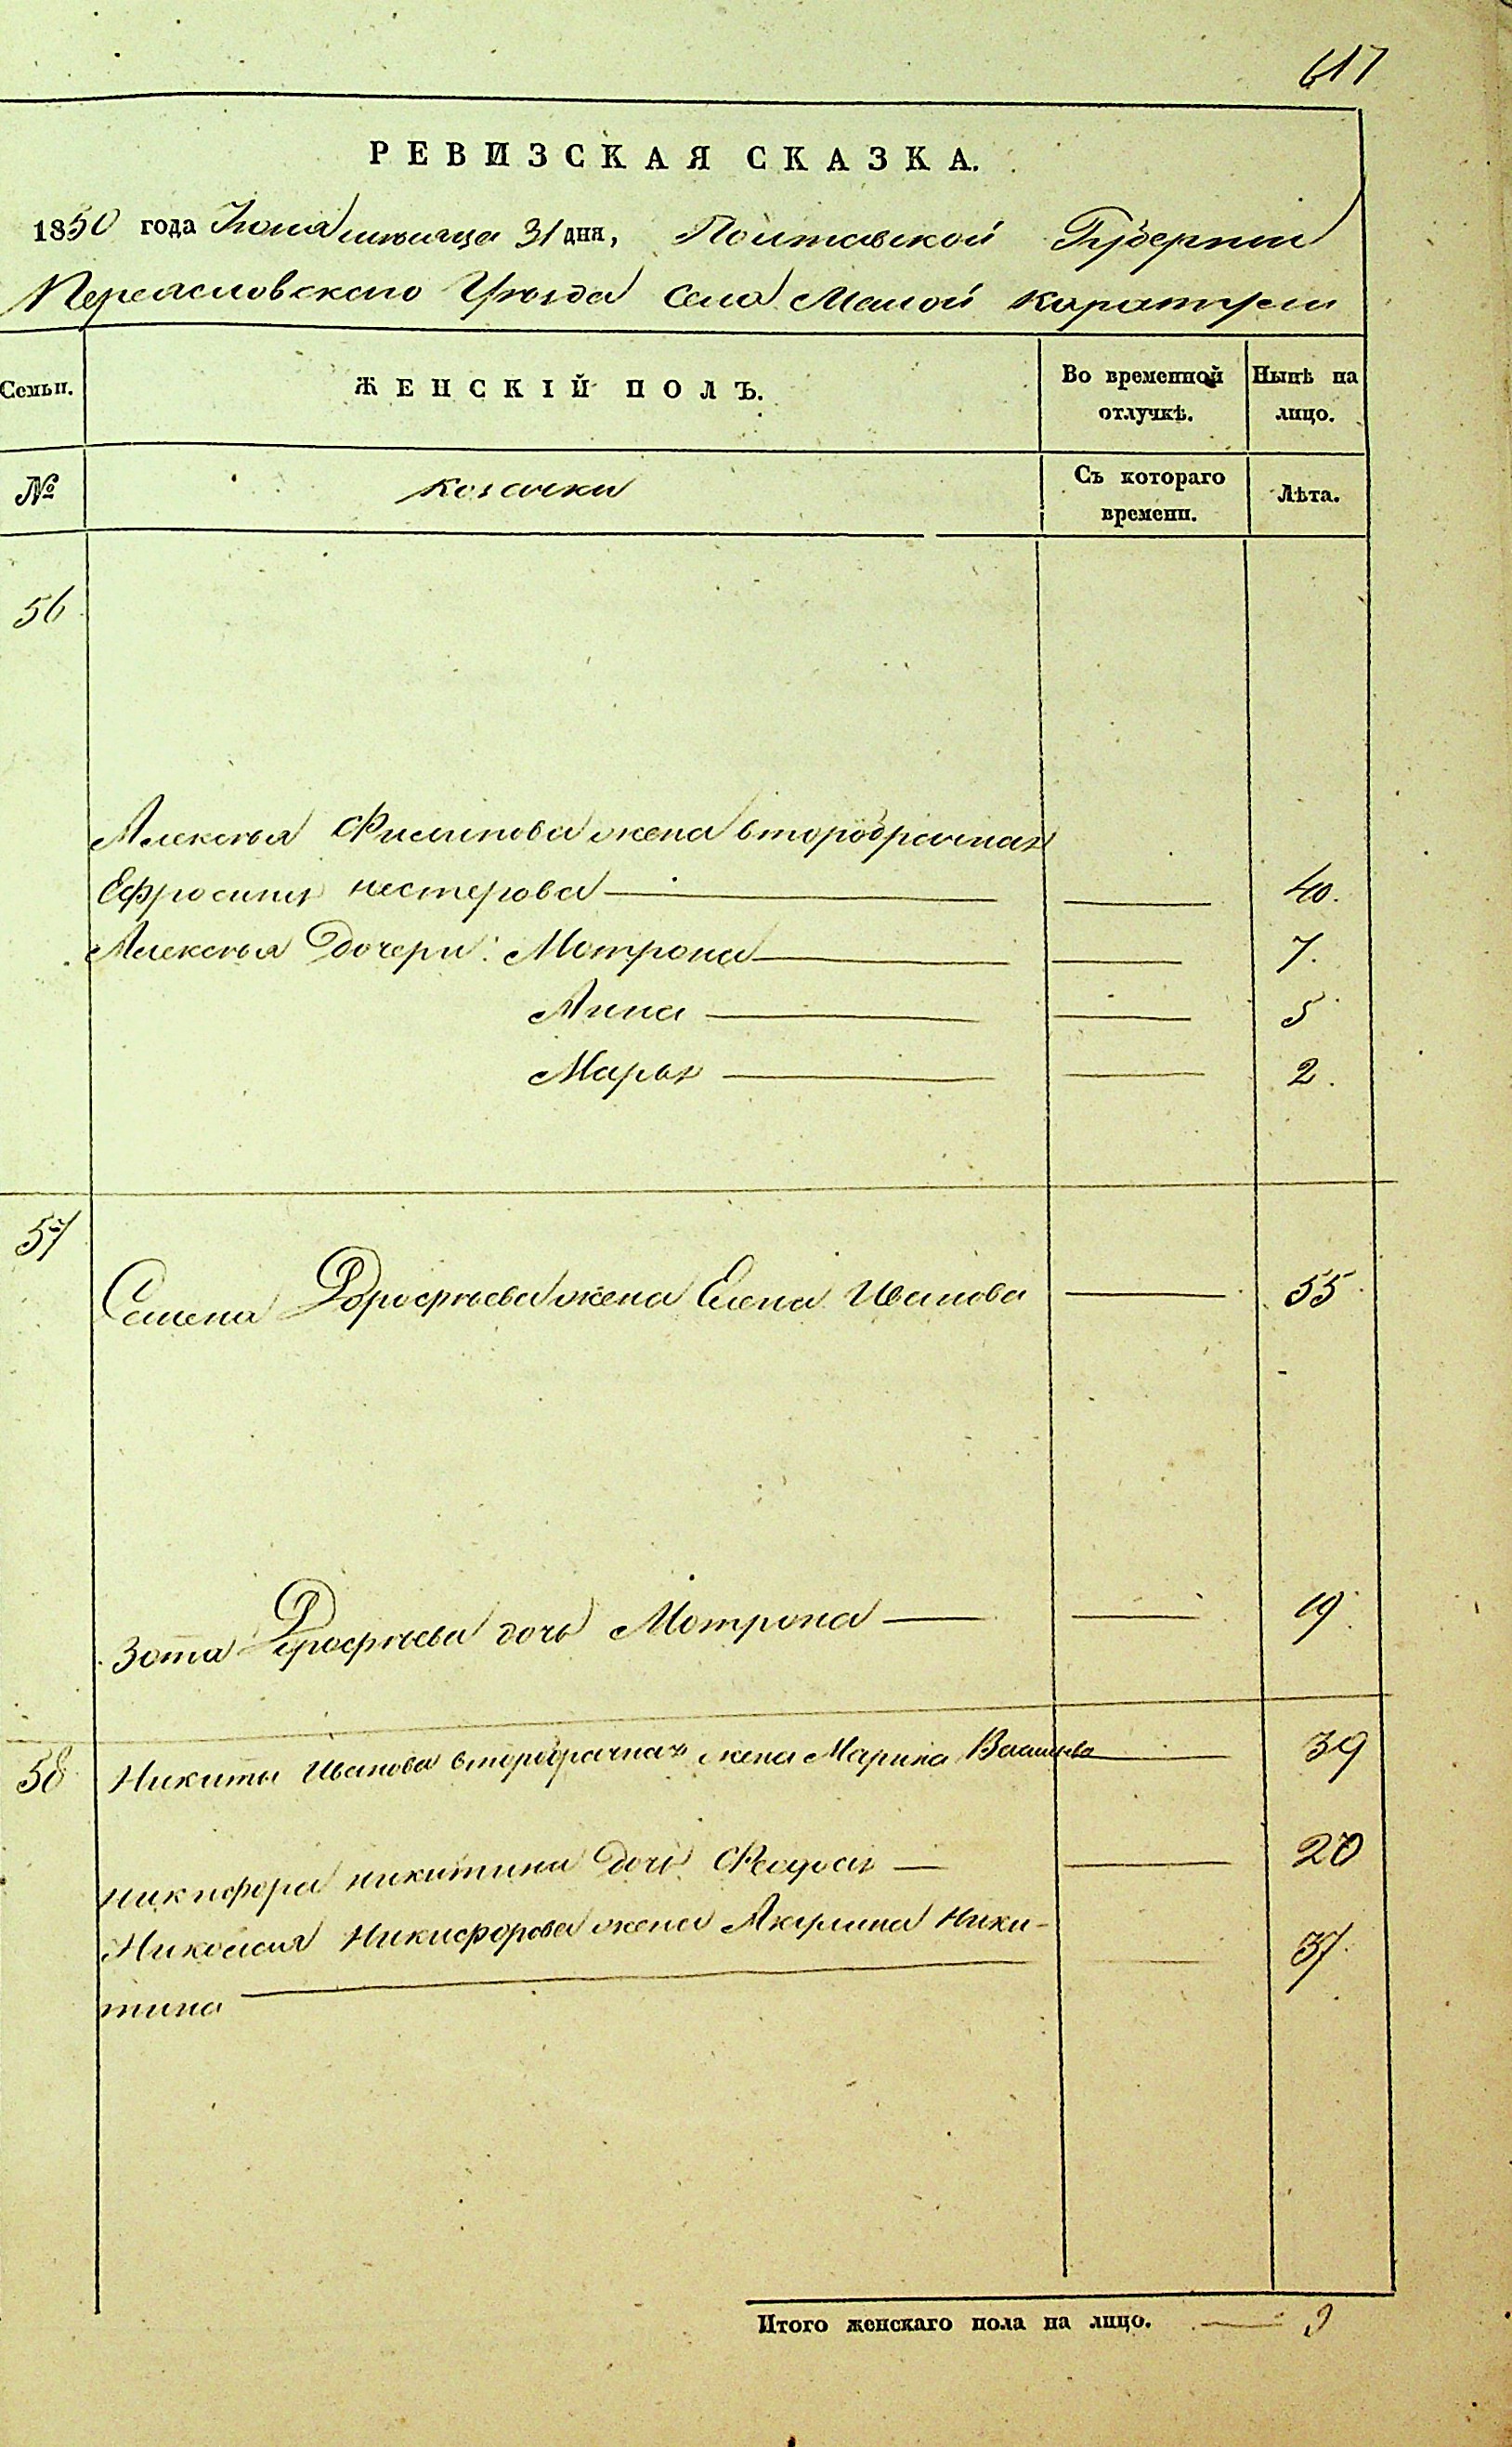 617
РЕВИЗСКАЯ СКАЗКА.
1850 года Іюля месяца 31 дня, Полтавской Губерніи
Переясловского Уѣзда Села Малой Каратули
Семьи. ЖЕНСКІЙ ПОЛЪ. Во временной отлучкѣ. Нынѣ на лицо.
№ козачки Съ котораго времени. Лѣта.
56
Алексѣя Филипова жена второбрачная
Ефросинія нестерова 40.
Алексѣя Дочери: Мотрона 7.
Анна 5
Марья 2.
57
Семена Дорофѣева жена Елена Иванова 55
Зота Дорофѣева дочь Мотрона 19
58 Никиты Иванова второбрачная жена Марина 39
никифора никитина Дочь Феодосія 20
Николая Никифорова жена Акулина Ники-
тина 37
Итого женскаго пола на лицо. 9